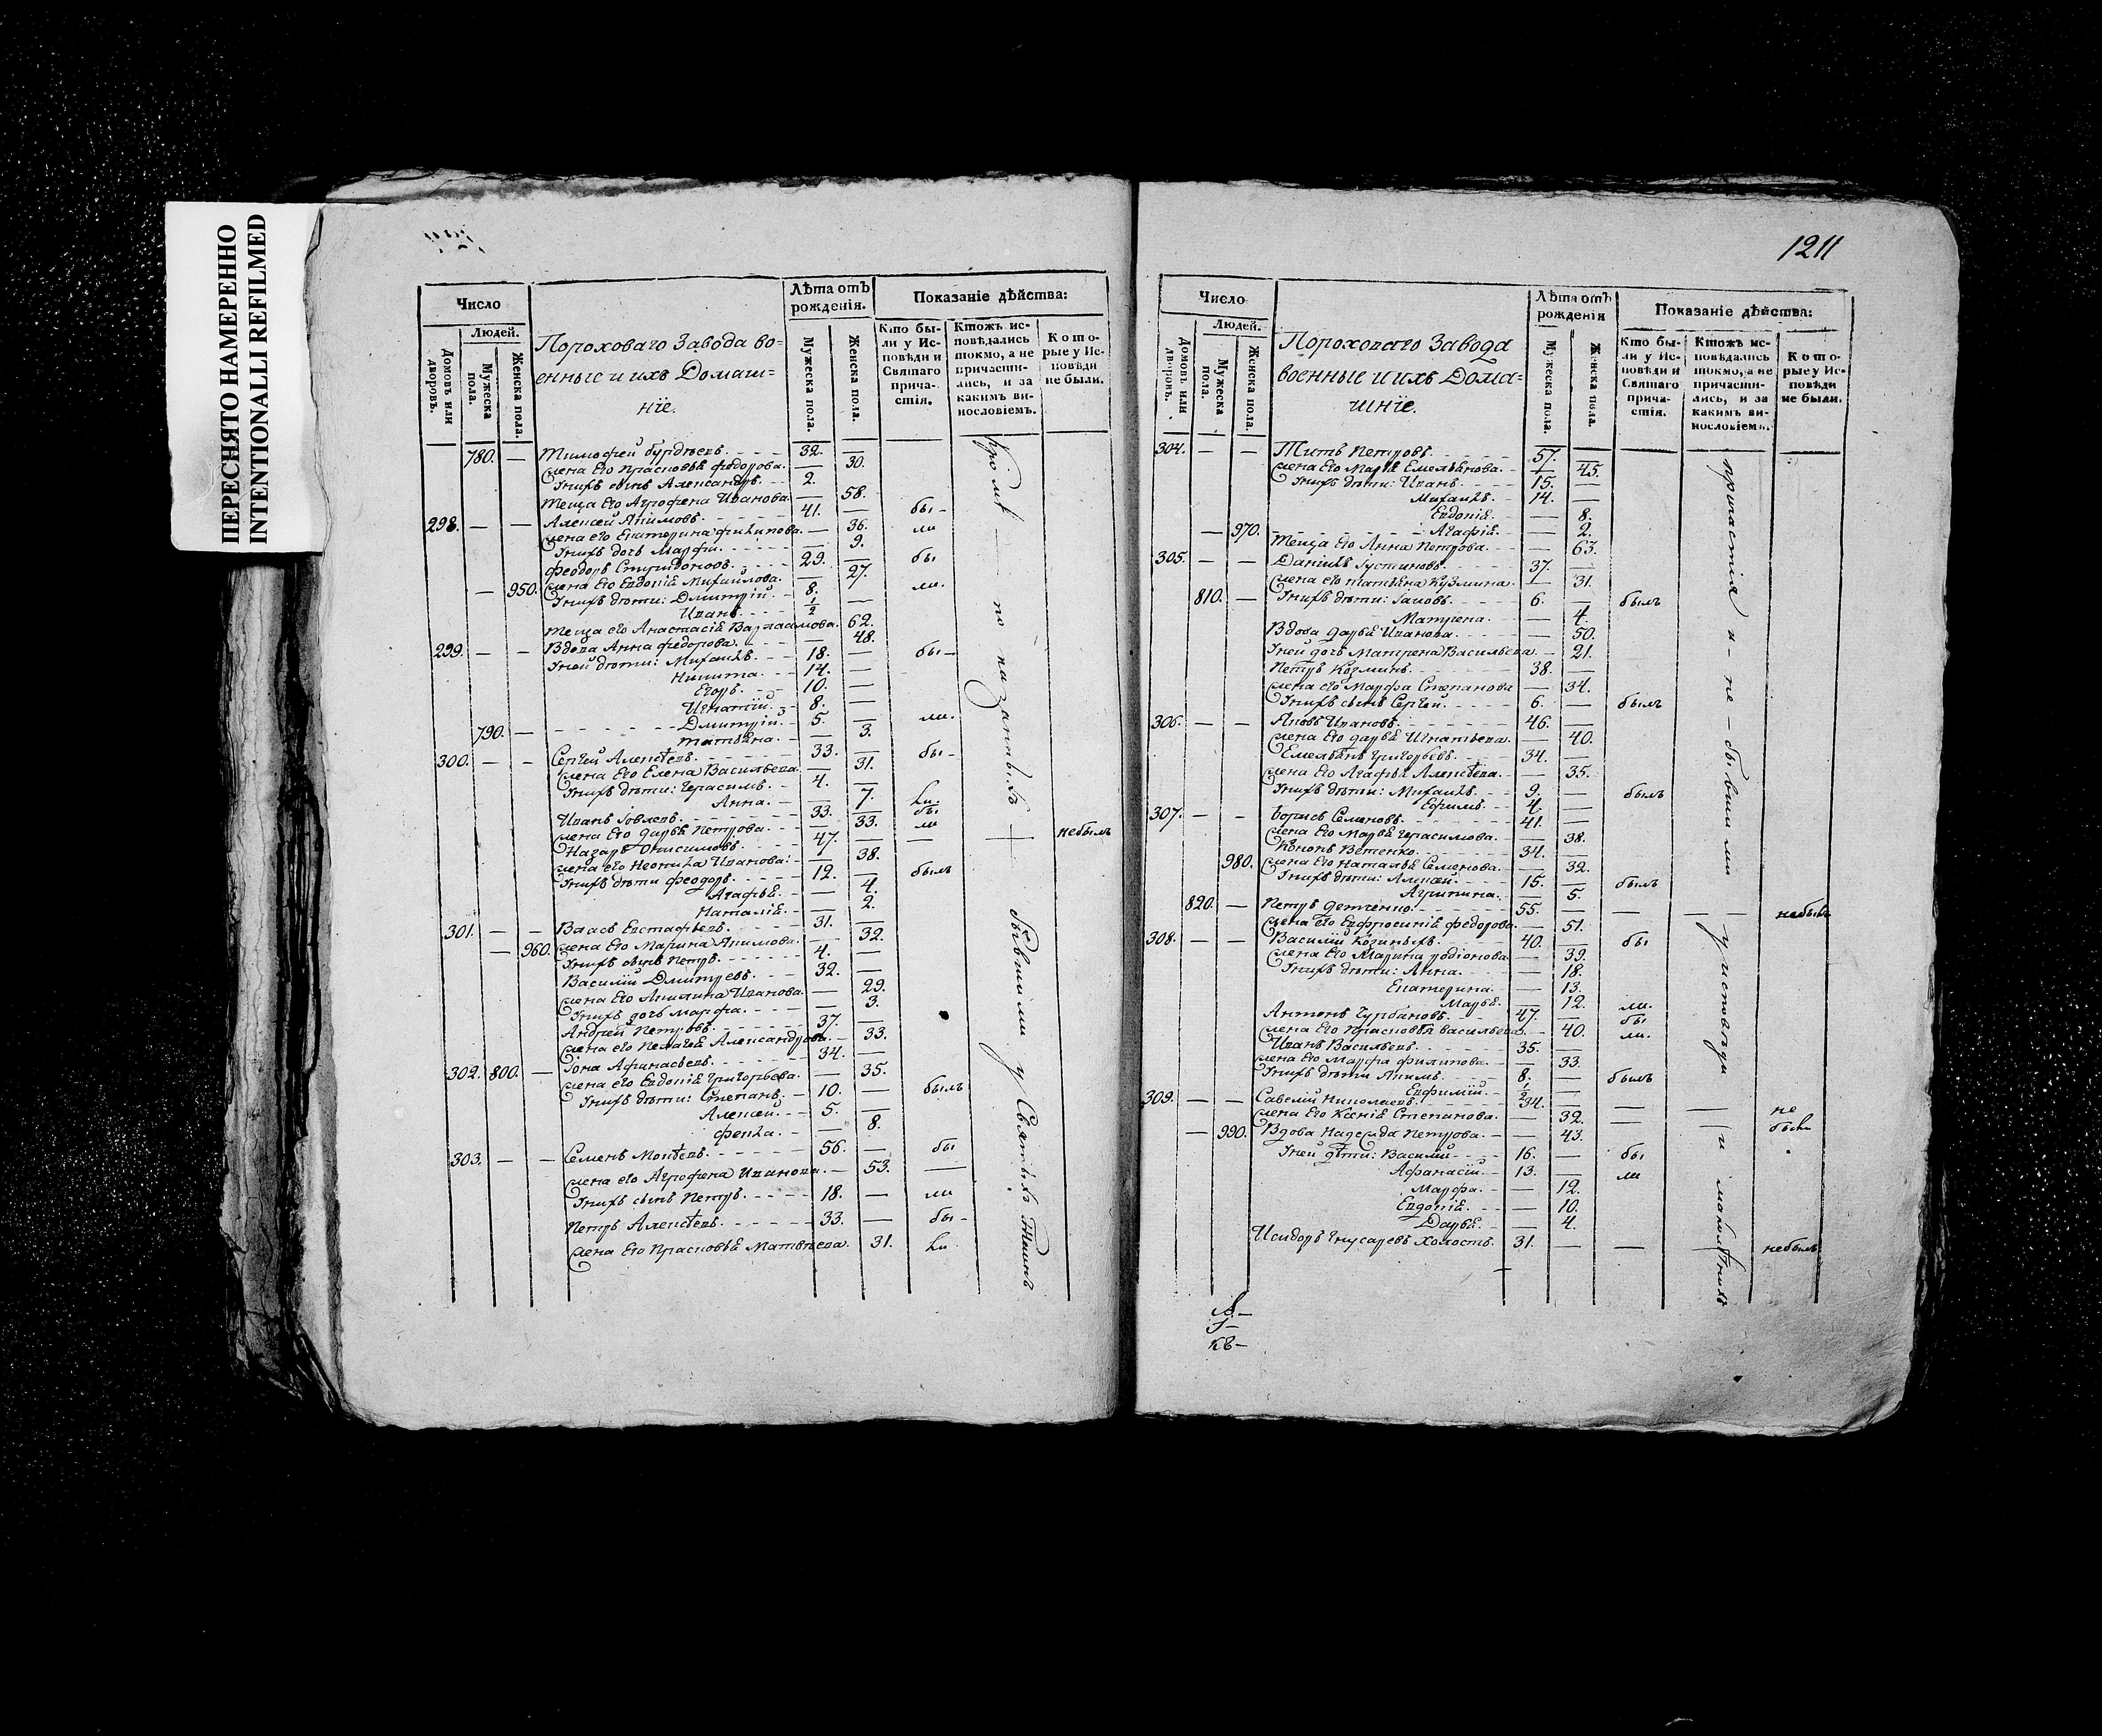 ПЕРЕСНЯТО НАМЕРЕННО
INTENTIONALLI REFILMED
Число
Людей.
Домовъ или дворовъ.
Мужеска пола.
Женска пола.
Пороховаго Завода во=
енные и ихъ Домаш=
нїе.
Лѣта отъ рожденія.
Мужеска пола.
Женска пола.
Показаніе дѣйства:
Кто бы-
ли у Ис-
повѣди и
Святаго
прича-
стія.
Ктожъ ис-
повѣдались
токмо, а не
причасти-
лись, и за
какимъ ви-
нословіемъ.
Кото-
рые у Ис-
повѣди
не были.
780. — Тимофей 32.
Жена Его Прасковья Федорова. — 30.
У нихъ сынъ Александръ. 2.
Теща Его Агрофена Иванова. — 58.
298. — — Алексей Акимовъ. 41. — бы-
Жена его Екатерина Филипова. — 36. ли
У нихъ дочь Марфа. — 9.
Феодоръ Спиридоновъ. 29. — бы
— 950. Жена Его Евдокія Михайлова. — 27.
У нихъ дѣти: Дмитрій. 8. — ли.
Иванъ. 1/2 —
Теща его Анастасія Варлаамова. 62.
299. — — Вдова Анна Федорова. — 48.
У ней дѣти: Михаилъ. 18. — бы-
Никита. 14. —
Егоръ. 10. —
Игнатій. 8. —
790. — Дмитрій. 5. — ли.
Татьяна. — 3.
300. — — Сергей Алексѣевъ. 33. — бы-
Жена Его Елена Васильева. — 31.
У нихъ дѣти: Герасимъ. 4. —
Анна. — 7. ли.
Иванъ Іовлевъ. 33. — бы
Жена Его Дарья Петрова. — 33. ли
Назаръ Онисимовъ. 47. — — небылъ
Жена его Неонила Иванова. — 38.
У нихъ дѣти Феодоръ. 12. — былъ
Агафья. — 4.
Наталія. — 2.
301. — — Власъ Евстафьевъ. 31. —
— 960. Жена Его Марина Акимова. — 32.
У нихъ сынъ Петръ. 4. —
Василій Дмитревъ. 32. —
Жена Его Акилина Иванова. — 29.
У нихъ дочь Марфа. — 3.
Андрей Петровъ. 37. —
Жена его Пелагея Александрова. — 33.
302. 800. — Іона Афанасьевъ. 34. —
Жена его Евдокія Григорьева. — 35.
У нихъ дѣти: Степанъ. 10. — былъ
Алексей. 5. —
Фекла. — 8.
303. — — Семенъ Моисѣевъ. 56. — бы
Жена его Агрофена Иванова. — 53. —
У нихъ сынъ Петръ. 18. — ли
Петръ Алексѣевъ. 33. — бы-
Жена Его Прасковья Матвѣева. 31. ли.
кромѣ — по — казанныхъ — бывшими у Святыхъ Таинъ
1211
Число
Людей.
Домовъ или дворовъ.
Мужеска пола.
Женска пола.
Пороховаго Завода
военные и ихъ Дома=
шнїе.
Лѣта отъ рожденія
Мужеска пола.
Женска пола.
Показаніе дѣйства:
Кто бы-
ли у Ис-
повѣди и
Святаго
прича-
стія.
Ктожъ ис-
повѣдались
токмо, а не
причасти-
лись, и за
какимъ ви-
нословіемъ.
Кото-
рые у Ис-
повѣди
не были.
304. — — Титъ Петровъ. 57. —
Жена Его Марья Емельянова. — 45.
У нихъ дѣти: Иванъ. 15. —
Михаилъ. 14. —
Евдокія. — 8.
— 970. Агафія. — 2.
Теща Его Анна Петрова. — 63.
305. — — Даніилъ Іустиновъ. 37. —
Жена его Татьяна Кузмина. — 31.
810. — У нихъ дѣти: Іаковъ. 6. — былъ
Матрена. — 4.
Вдова Дарья Иванова. — 50.
У ней дочь Матрена Васильева. — 21.
Петръ Козминъ. 38. —
Жена его Марфа Степанова — 34.
У нихъ сынъ Сергей. 6. — былъ
306. — — Яковъ Ивановъ. 46. —
Жена Его Дарья Игнатьева. — 40.
Емельянъ Григорьевъ. 34. —
Жена его Агафья Алексѣева. — 35.
У нихъ дѣти: Михаилъ. 9. — былъ
Ефимъ. 4. —
307. — — Борисъ Семеновъ. 41. —
Жена Его Марья Герасимова. — 38.
Кононъ Ветенко. 34. —
980. Жена Его Наталья Семенова. — 32.
У нихъ дѣти: Алексей. 15. — былъ
Агрипина. — 5.
820. — Петръ 55. — — — небылъ
Жена его Евфросинія Федорова. — 51.
308. — — Василій 40. — бы
Жена его Марина Родіонова. — 39.
У нихъ дѣти: Анна. — 18.
Екатерина. — 13.
Марья. — 12. ли.
Антонъ Гурбановъ. 47. — бы
Жена Его Прасковья Васильева. — 40. ли.
Иванъ Васильевъ. 35. —
Жена Его Марфа Филипова. — 33.
У нихъ дѣти Акимъ. 8. — былъ
Евфимій. 1/2 —
309. — — Савелій Николаевъ. 34. — — — не
Жена Его Ксенія Степанова. — 32. — были
— 990. Вдова Надежда Петрова. — 43.
У ней дѣти: Василій. 16. — бы
Афанасій. 13. — ли
Марфа. — 12.
Евдокія. — 10.
Дарья. — 4.
Исидоръ Гнусаревъ холостъ. 31. — — небылъ
причастія и — не — бывшими — у исповѣди — и